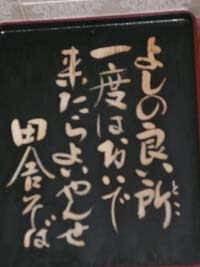 よしの良い所
とこ
一度はおいで
来たらよいやんせ
田舎そば